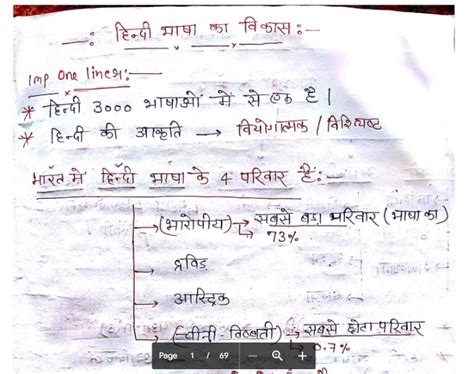 —: हिन्दी भाषा का विकास :—
Imp One liners:—
* हिन्दी 3000 भाषाओं में से एक है।
* हिन्दी की आकृति → वियोगात्मक / विश्लिष्ट
भारत में हिन्दी भाषा के 4 परिवार हैं:—
→ (भारोपीय) → सबसे बड़ा परिवार (भाषा का)
↳ 73%
→ द्रविड़
→ आस्ट्रिक
→ (चीनी-तिब्बती) → सबसे छोटा परिवार
↳ 0.7%
Page 1 / 69 — +